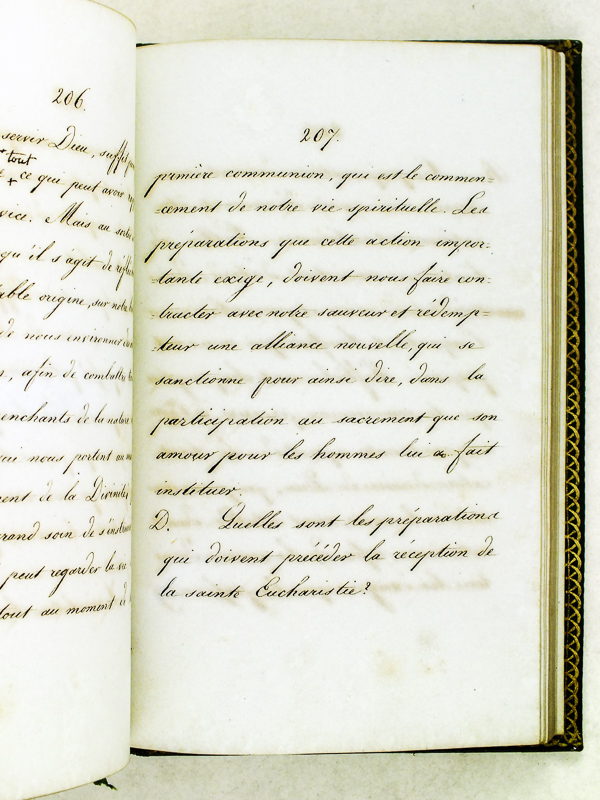 206.
servir Dieu,
tout
+ ce qui peut avoir
vice. Mais au
qu'il s'agit de
able origine, sur notre
de nous environner
n, afin de combattre
enchants de la nature
qui nous portent au
ent de la Divinité,
rand soin de
peut regarder la
tout au moment de
207.
première communion, qui est le commen=
=cement de notre vie spirituelle. Les
préparations que cette action impor=
=tante exige, doivent nous faire con=
=tracter avec notre sauveur et rédemp=
=teur une alliance nouvelle, qui se
sanctionne pour ainsi dire, dans la
participation au sacrement que son
amour pour les hommes lui a fait
instituer.
D. Quelles sont les préparations
qui doivent précéder la réception de
la sainte Eucharistie?